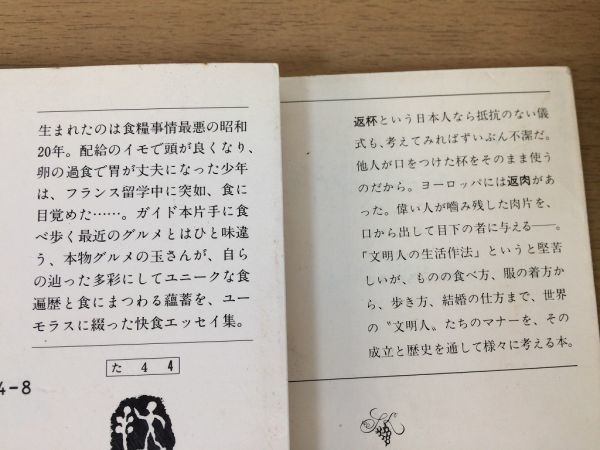 生まれたのは食糧事情最悪の昭和
20年。配給のイモで頭が良くなり、
卵の過食で胃が丈夫になった少年
は、フランス留学中に突如、食に
目覚めた……。ガイド本片手に食
べ歩く最近のグルメとはひと味違
う、本物グルメの玉さんが、自ら
の辿った多彩にしてユニークな食
遍歴と食にまつわる蘊蓄を、ユー
モラスに綴った快食エッセイ集。
た 4 4
4-8
返杯という日本人なら抵抗のない儀
式も、考えてみればずいぶん不潔だ。
他人が口をつけた杯をそのまま使う
のだから。ヨーロッパには返肉があ
った。偉い人が嚙み残した肉片を、
口から出して目下の者に与える──。
「文明人の生活作法」というと堅苦
しいが、ものの食べ方、服の着方か
ら、歩き方、結婚の仕方まで、世界
の〝文明人〟たちのマナーを、その
成立と歴史を通して様々に考える本。